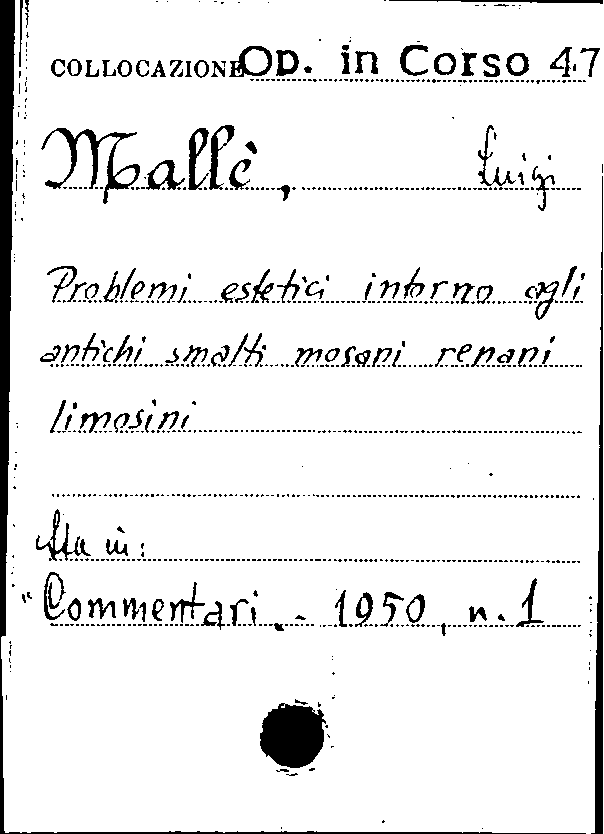 COLLOCAZIONE OP. in Corso 47
Mallè, Luigi
Problemi estetici intorno agli
antichi smalti mosani renani
limosini
Sta in:
"Commentari. - 1950, n. 1